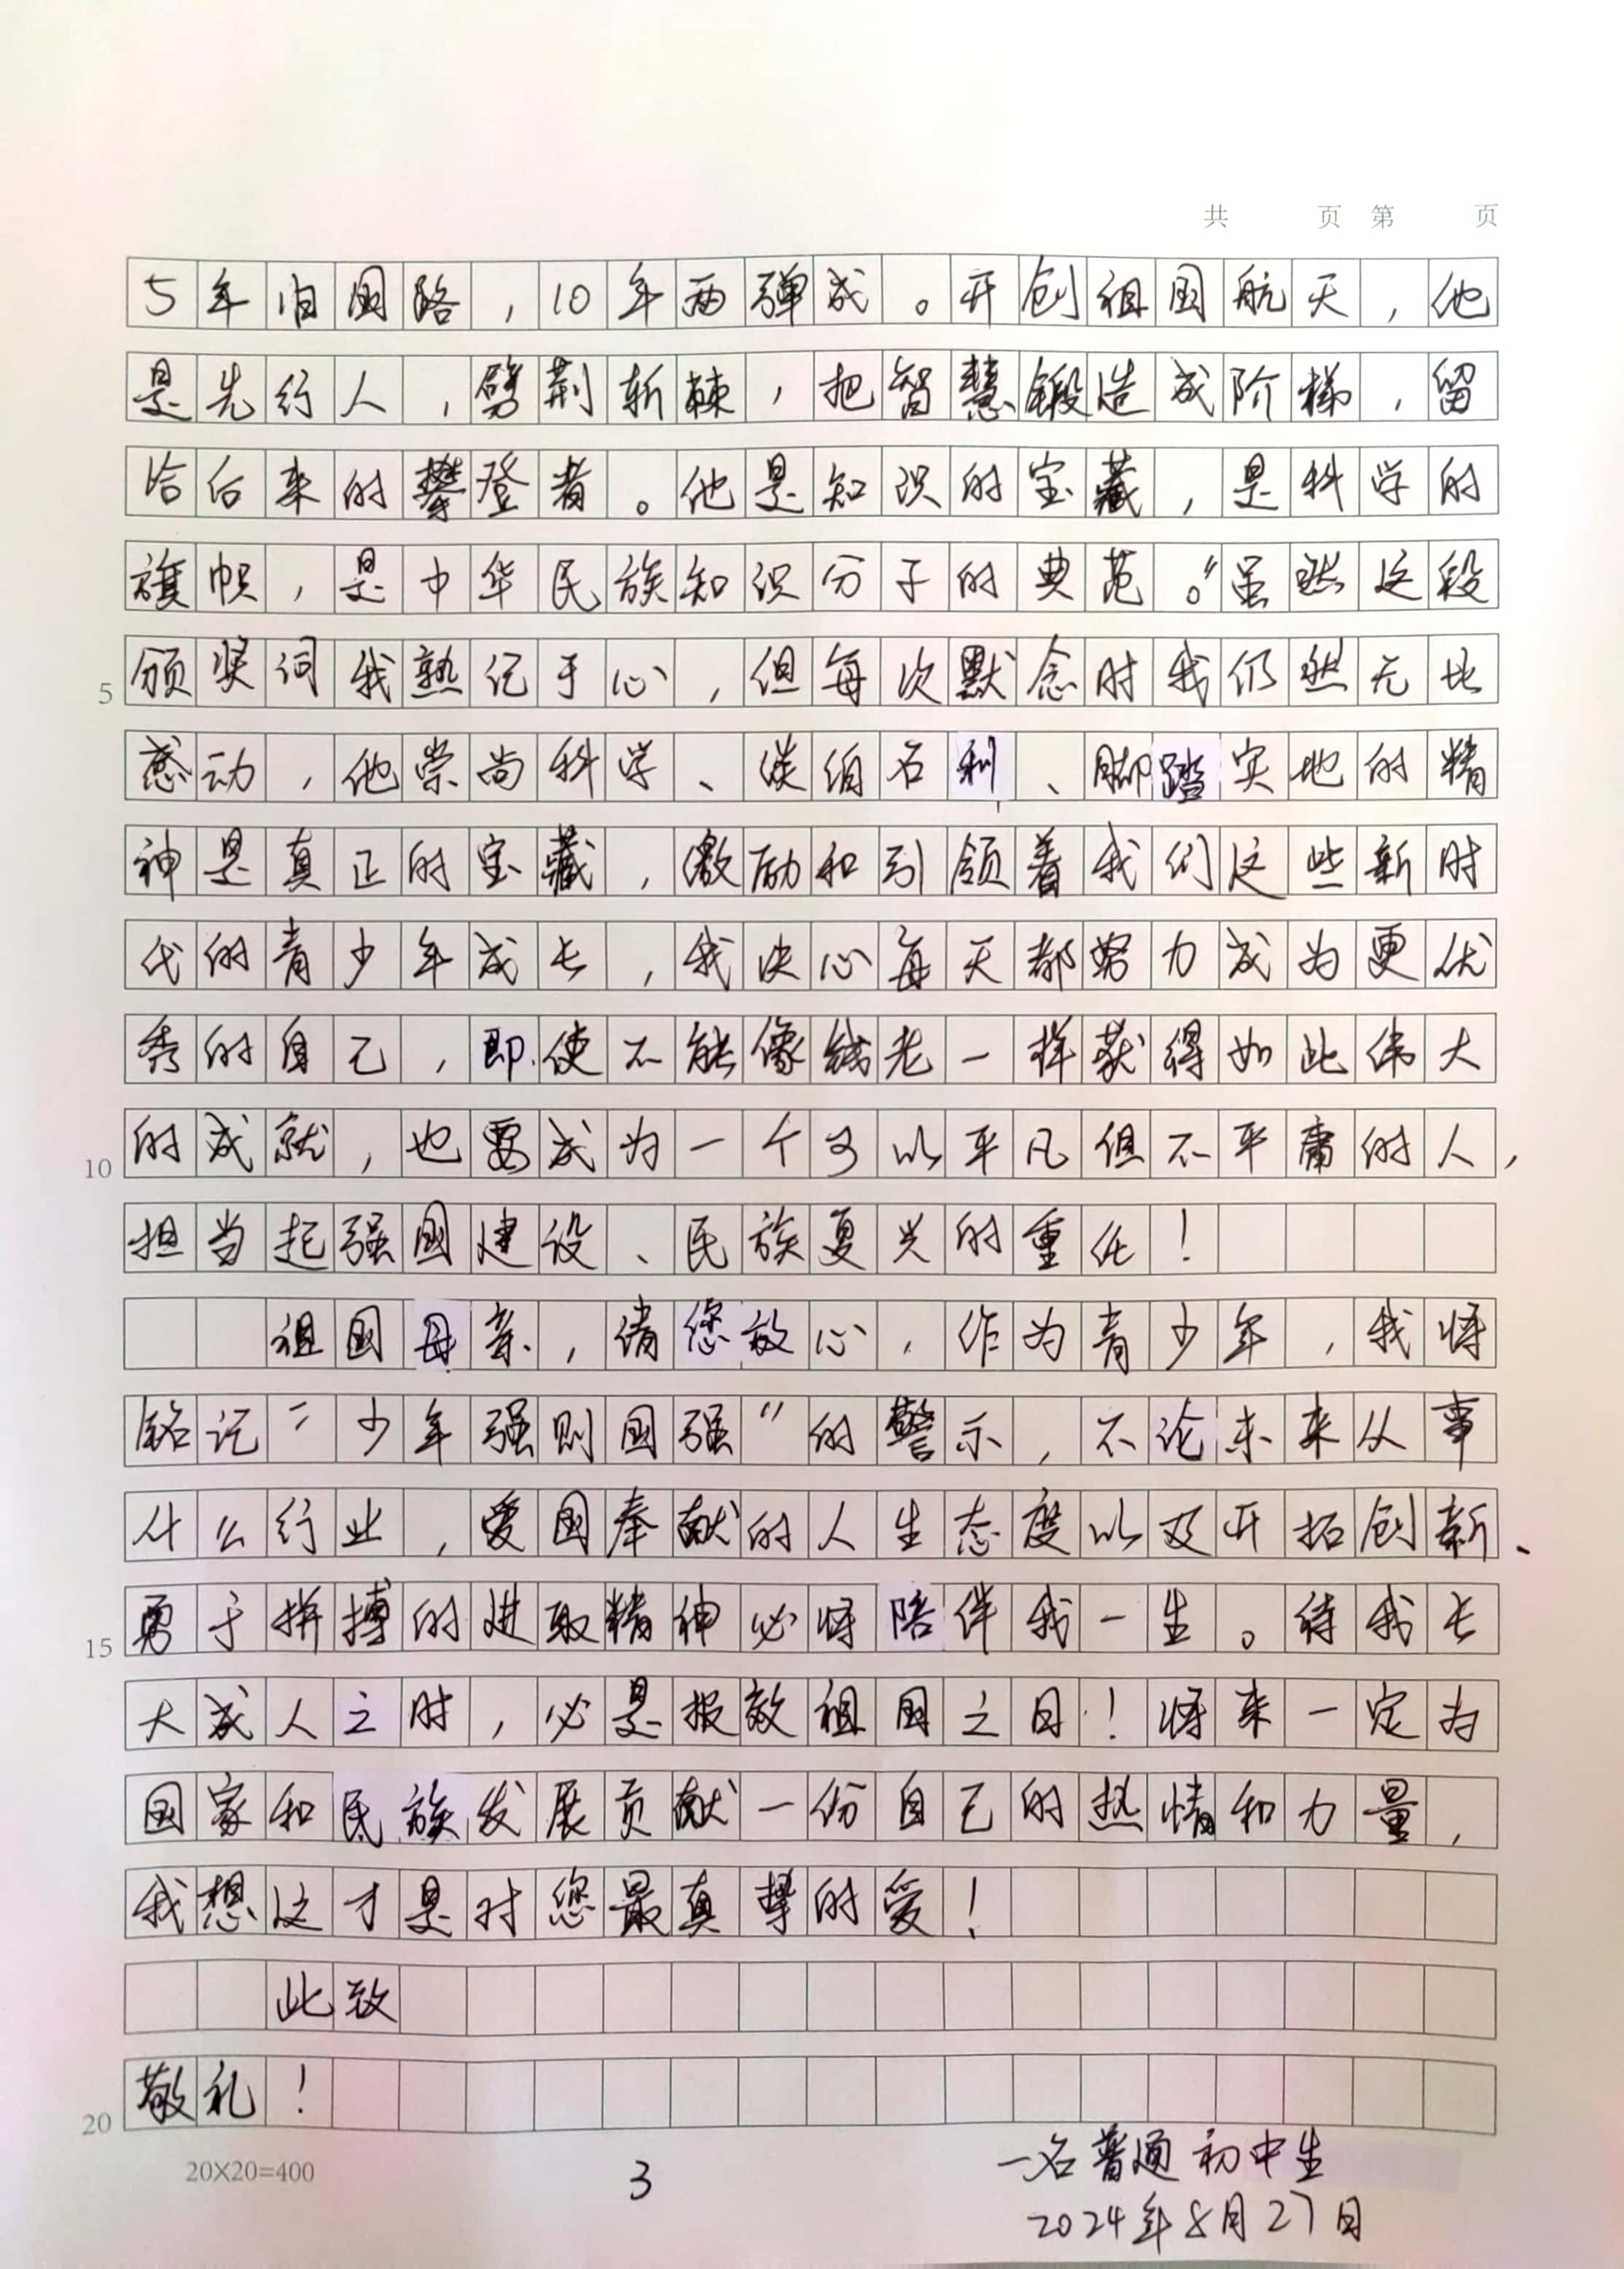 共 页 第 页
5年归国路，10年两弹成。开创祖国航天，他
是先行人，劈荆斩棘，把智慧锻造成阶梯，留
给后来的攀登者。他是知识的宝藏，是科学的
旗帜，是中华民族知识分子的典范。”虽然这段
颁奖词我熟记于心，但每次默念时我仍然无比
感动，他崇尚科学、淡泊名利、脚踏实地的精
神是真正的宝藏，激励和引领着我们这些新时
代的青少年成长，我决心每天都努力成为更优
秀的自己，即使不能像钱老一样获得如此伟大
的成就，也要成为一个可以平凡但不平庸的人，
担当起强国建设、民族复兴的重任！
祖国母亲，请您放心，作为青少年，我将
铭记“少年强则国强”的警示，不论未来从事
什么行业，爱国奉献的人生态度以及开拓创新、
勇于拼搏的进取精神必将陪伴我一生。待我长
大成人之时，必是报效祖国之日！将来一定为
国家和民族发展贡献一份自己的热情和力量，
我想这才是对您最真挚的爱！
此致
敬礼！
5
10
15
20
20×20=400
3
一名普通初中生
2024年8月27日